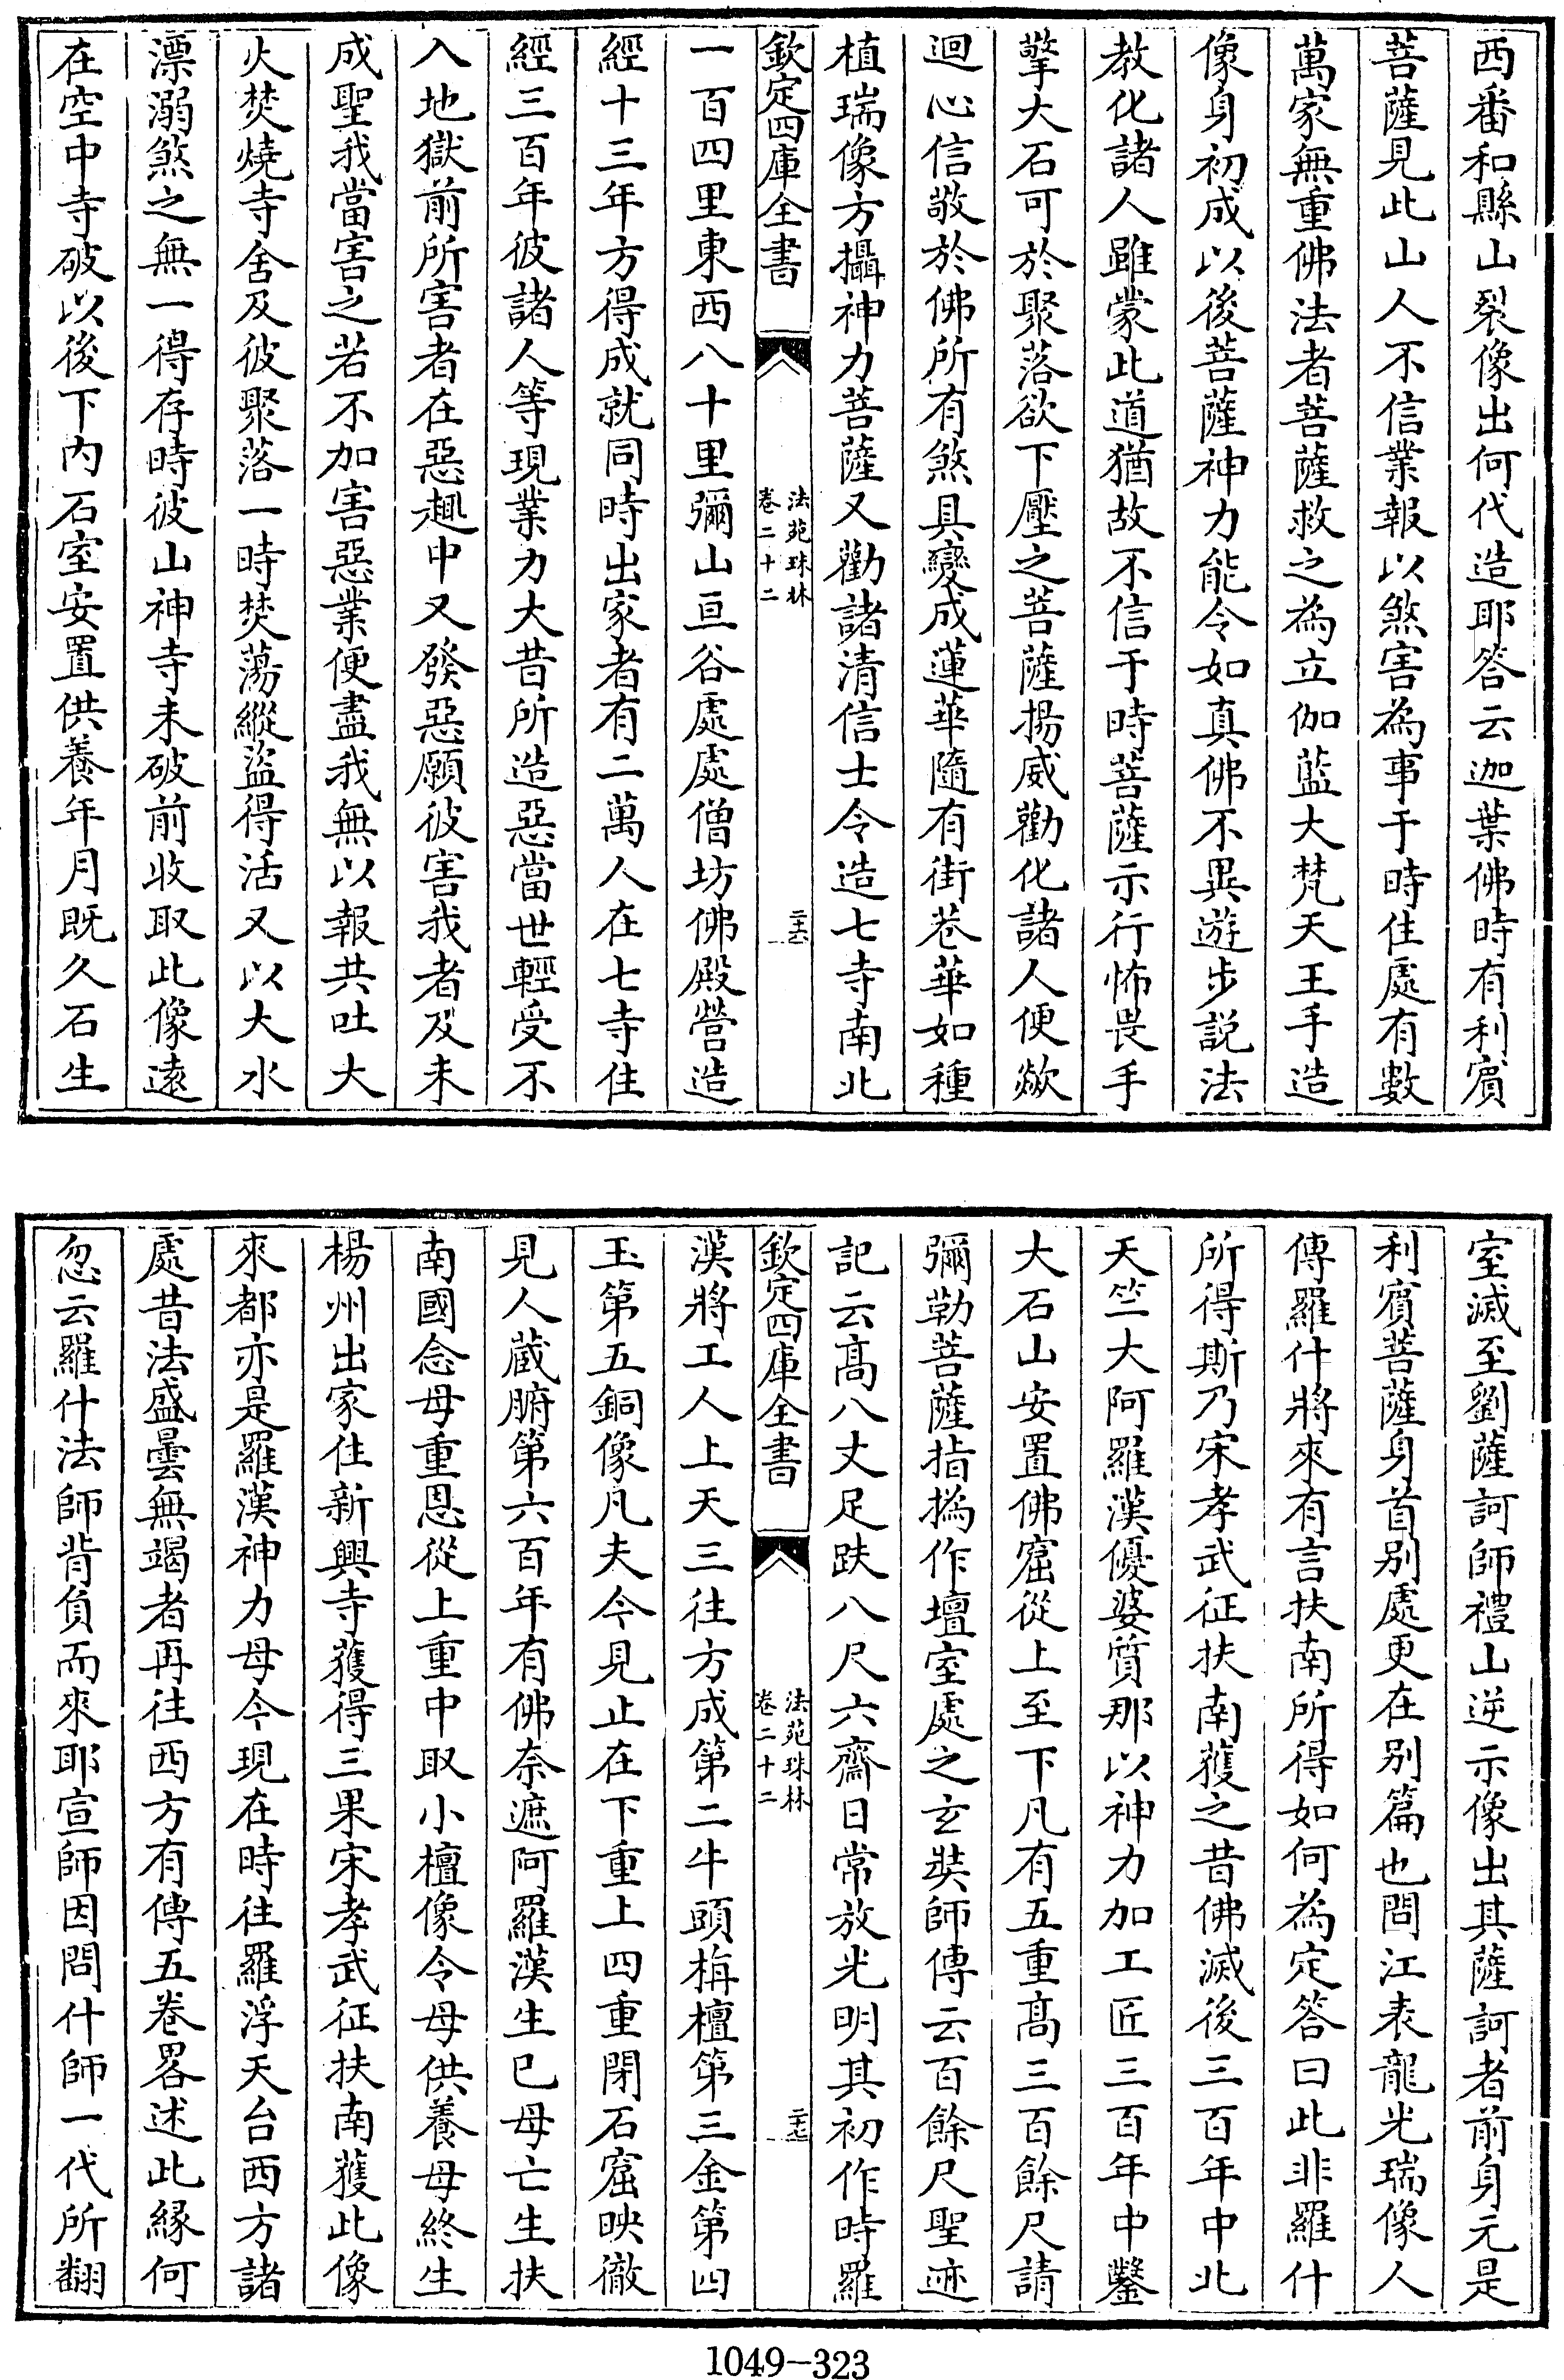 西番和縣山裂像出何代造耶答云迦葉佛時有利賓
菩薩見此山人不信業報以煞害為事于時住處有數
萬家無重佛法者菩薩救之為立伽藍大梵天王手造
像身初成以後菩薩神力能令如真佛不異遊步説法
教化諸人雖蒙此道猶故不信于時菩薩示行怖畏手
擎大石可於聚落欲下壓之菩薩揚威勸化諸人便歘
迴心信敬於佛所有煞具變成蓮華隨有街巷華如種
植瑞像方攝神力菩薩又勸諸清信士令造七寺南北
欽定四庫全書
法苑珠林
卷二十二
二十六
一百四里東西八十里彌山亘谷處處僧坊佛殿營造
經十三年方得成就同時出家者有二萬人在七寺住
經三百年彼諸人等現業力大昔所造惡當世輕受不
入地獄前所害者在惡趣中又發惡願彼害我者及未
成聖我當害之若不加害惡業便盡我無以報共吐大
火焚燒寺舍及彼聚落一時焚蕩縱盜得活又以大水
漂溺煞之無一得存時彼山神寺未破前收取此像遠
在空中寺破以後下内石室安置供養年月既久石生
室滅至劉薩訶師禮山逆示像出其薩訶者前身元是
利賓菩薩身首别處更在别篇也問江表龍光瑞像人
傳羅什將來有言扶南所得如何為定答曰此非羅什
所得斯乃宋孝武征扶南獲之昔佛滅後三百年中北
天竺大阿羅漢優婆質那以神力加工匠三百年中鑿
大石山安置佛窟從上至下凡有五重髙三百餘尺請
彌勒菩薩指撝作壇室處之玄奘師傳云百餘尺聖迹
記云髙八丈足趺八尺六齋日常放光明其初作時羅
欽定四庫全書
法苑珠林
卷二十二
二十七
漢將工人上天三往方成第二牛頭栴檀第三金第四
玉第五銅像凡夫今見止在下重上四重閉石窟映徹
見人蔵腑第六百年有佛奈遮阿羅漢生已母亡生扶
南國念母重恩從上重中取小檀像令母供養母終生
楊州出家住新興寺獲得三果宋孝武征扶南獲此像
來都亦是羅漢神力母今現在時往羅浮天台西方諸
處昔法盛曇無竭者再往西方有傳五卷畧述此縁何
忽云羅什法師背負而來耶宣師因問什師一代所翻
1049-323